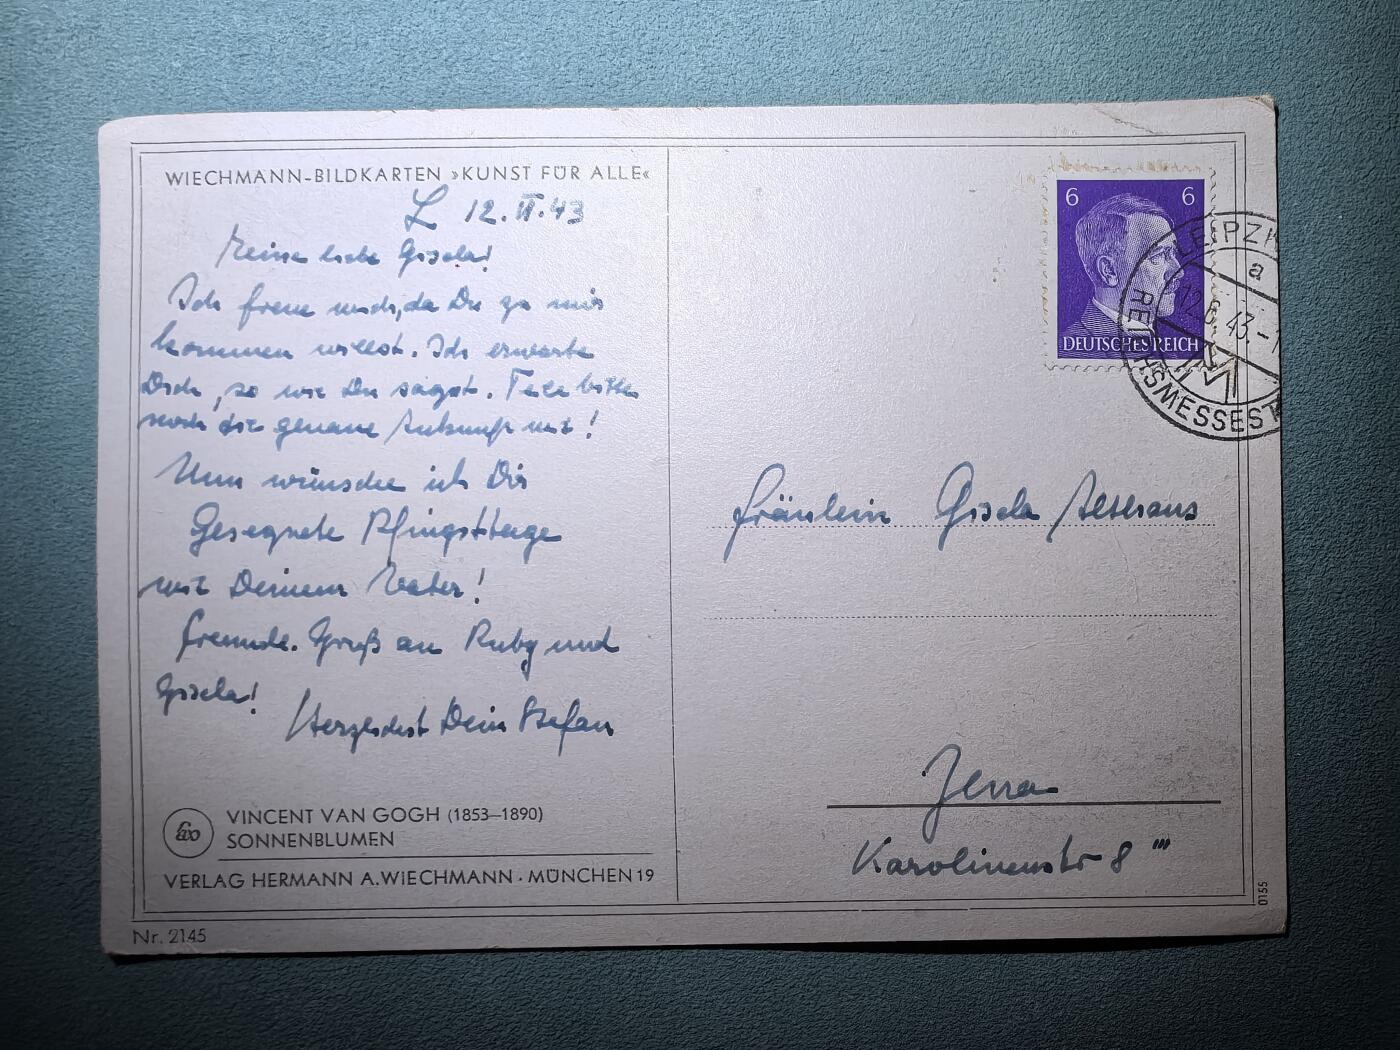 WIECHMANN-BILDKARTEN »KUNST FÜR ALLE«
L 12. VI. 43
Meine liebe Gisela!
Ich freue mich, da Du zu mir
kommen willst. Ich erwarte
Dich, so wie Du sagst. Teile bitte
noch die genaue Ankunft mit!
Nun wünsche ich Dir
Gesegnete Pfingsttage
mit Deinem Vater!
Freundl. Gruß an Ruby und
Gisela!
Herzlichst Dein Stefan
VINCENT VAN GOGH (1853–1890)
SONNENBLUMEN
VERLAG HERMANN A. WIECHMANN · MÜNCHEN 19
Nr. 2145
6 6
DEUTSCHES REICH
LEIPZI
a
12.6.43.-1
REICHSMESSEST
Fräulein Gisela
Jena
Karolinenstr 8 '''
0155